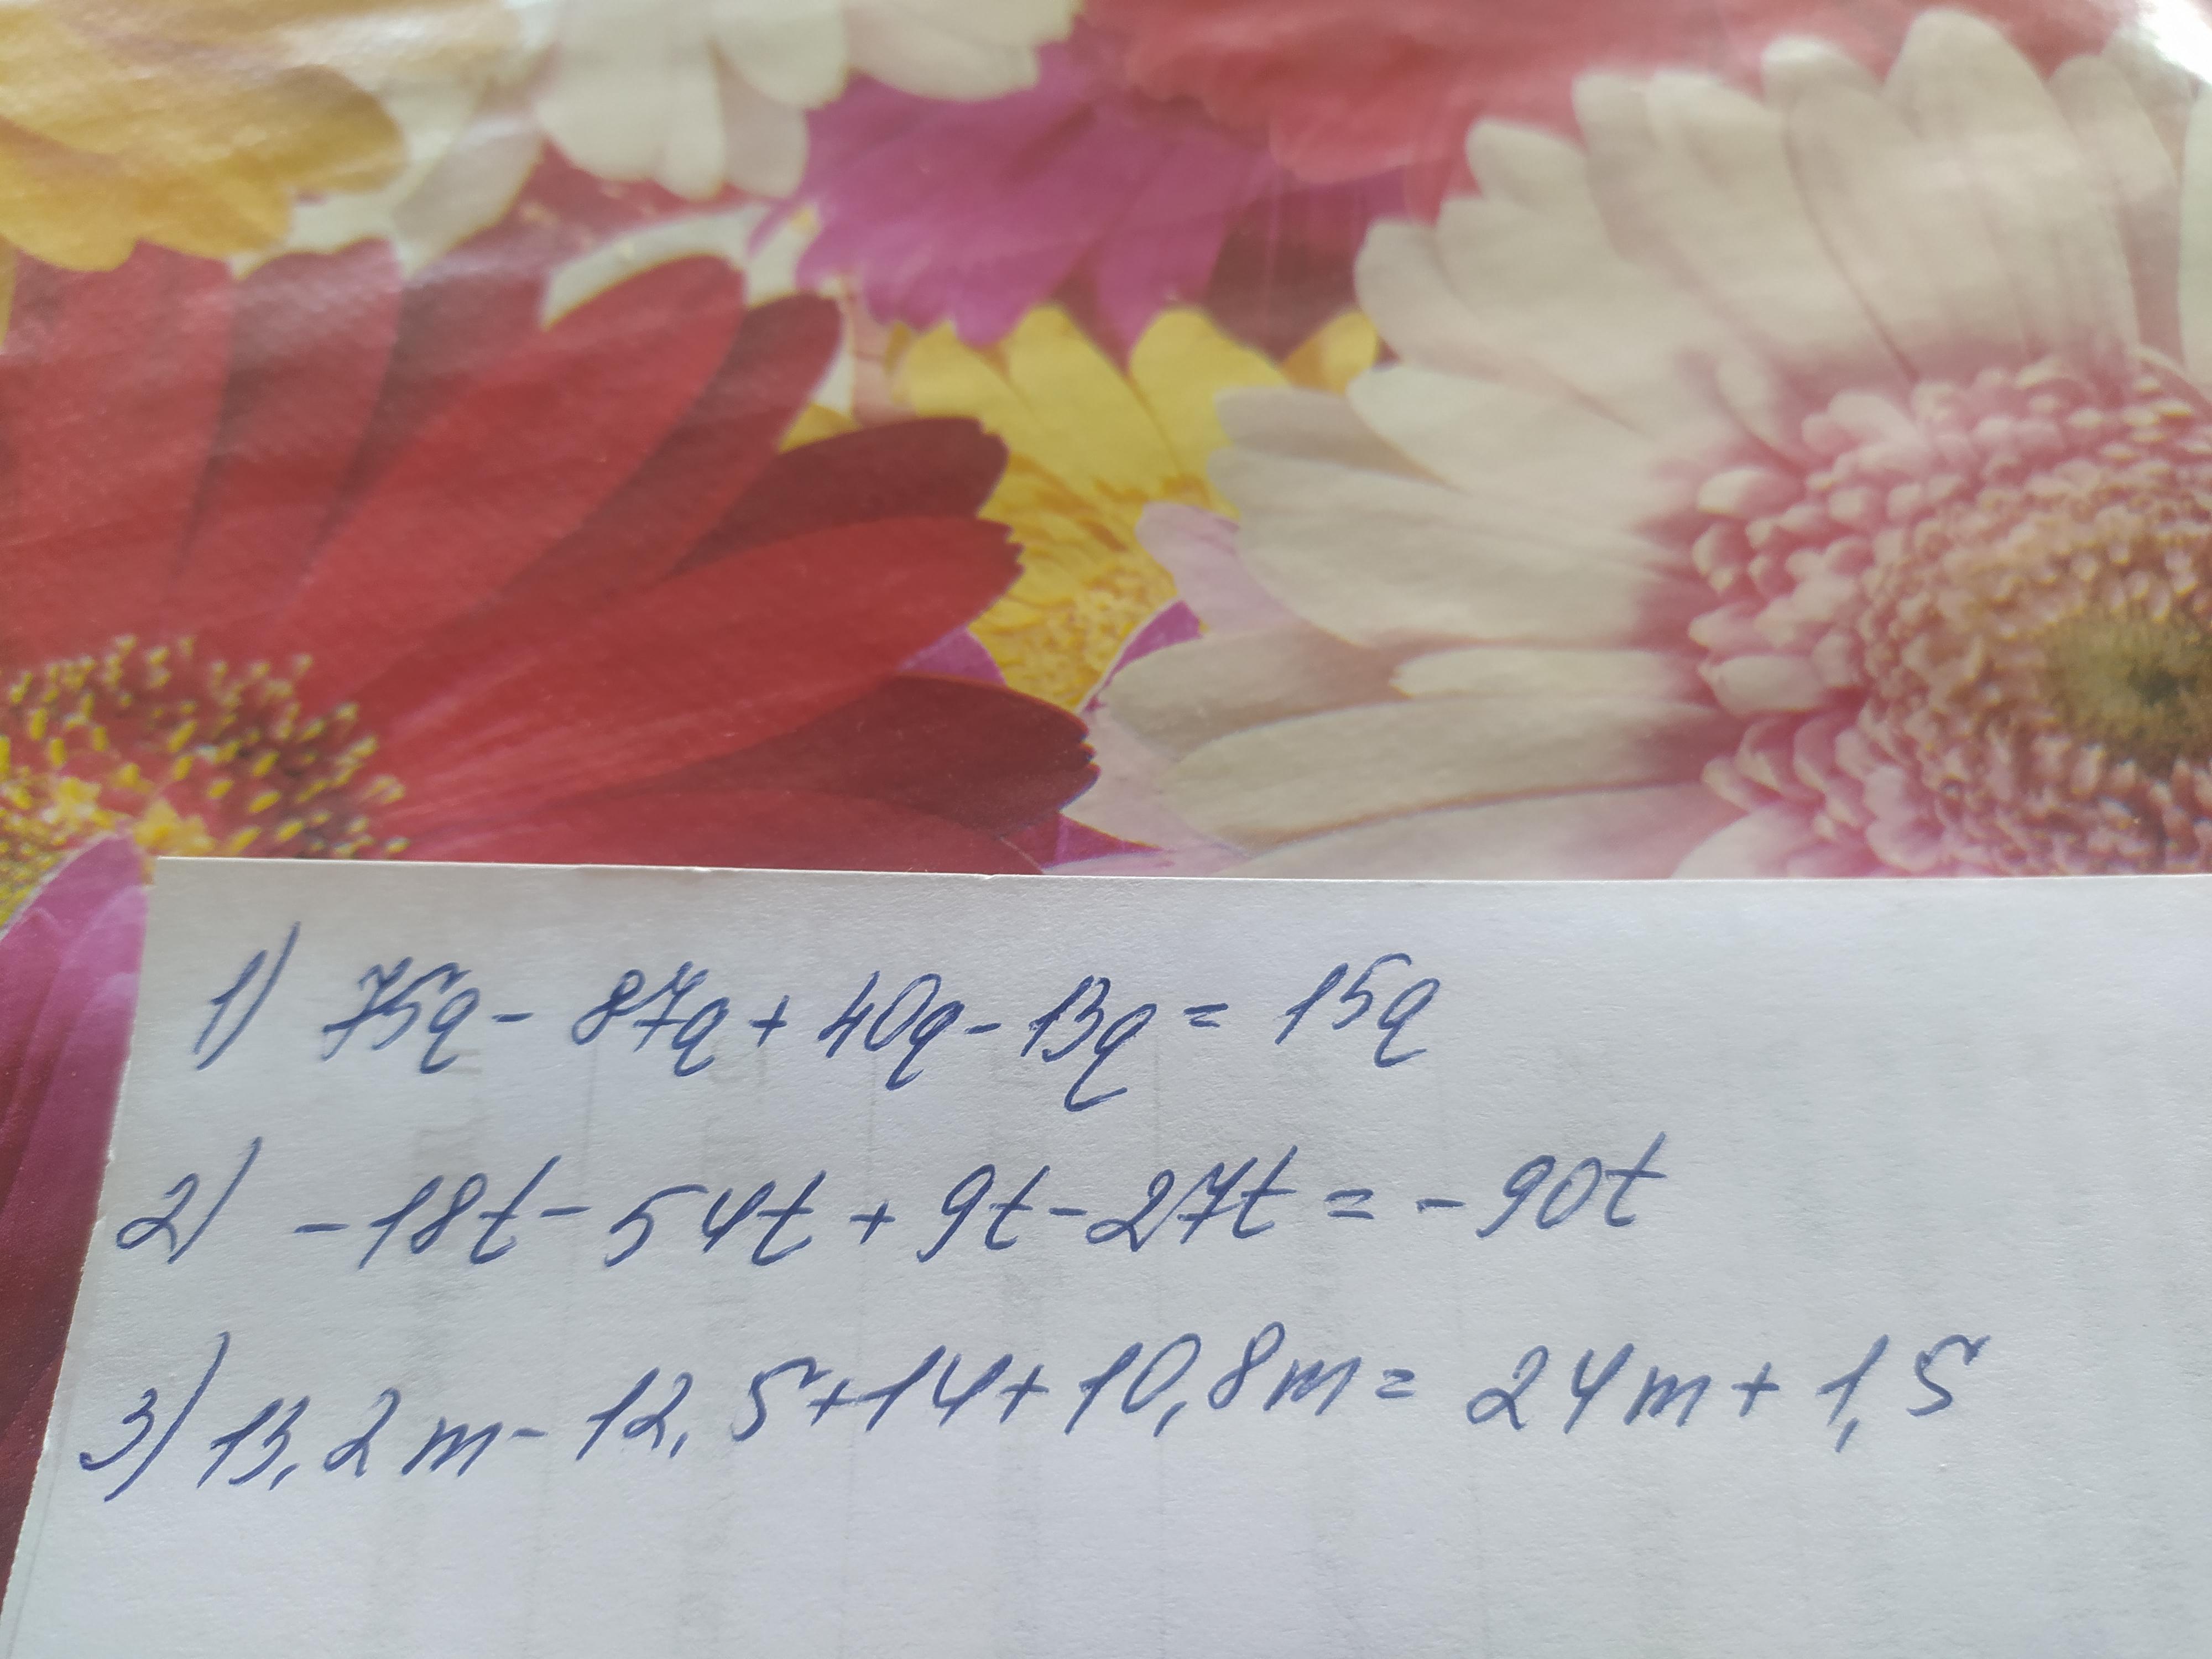 1) 75q - 87q + 40q - 13q = 15q
2) - 18t - 54t + 9t - 27t = - 90t
3) 13,2m - 12,5 + 14 + 10,8m = 24m + 1,5